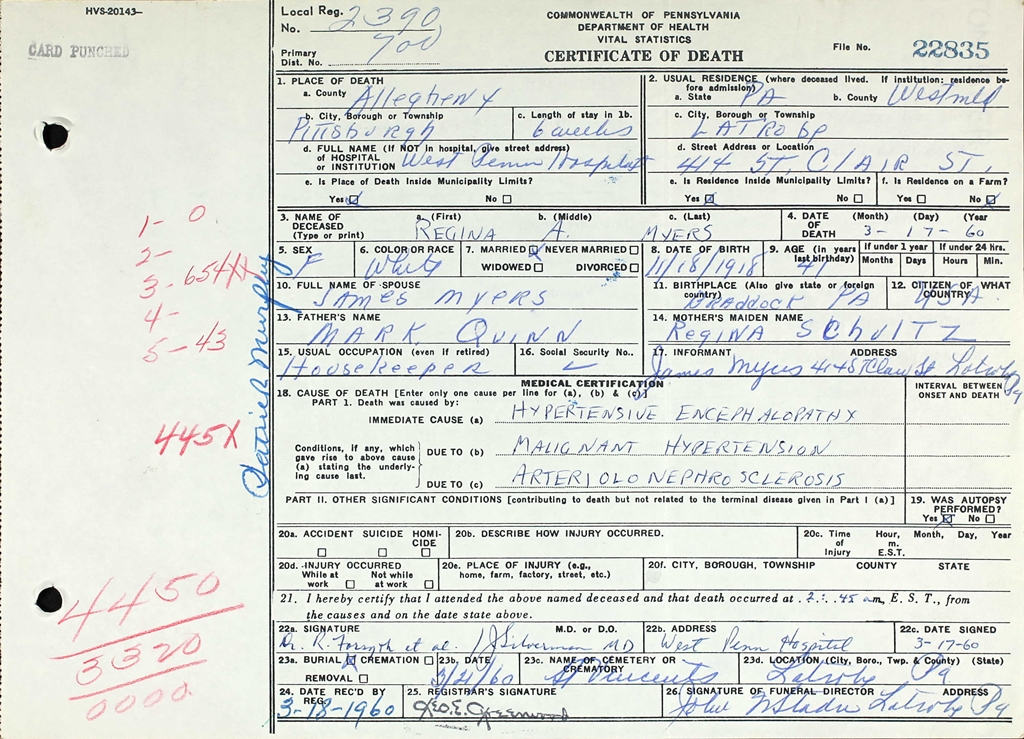 HVS-20143-
CARD PUNCHED
Local Reg. No. 2390
700
Primary Dist. No.
COMMONWEALTH OF PENNSYLVANIA
DEPARTMENT OF HEALTH
VITAL STATISTICS
CERTIFICATE OF DEATH
File No. 22835
1. PLACE OF DEATH
a. County Allegheny
b. City, Borough or Township Pittsburgh
c. Length of stay in 1b. 6 weeks
d. FULL NAME (If NOT in hospital, give street address) OF HOSPITAL OR INSTITUTION West Penn Hospital
e. Is Place of Death Inside Municipality Limits?
Yes ☒ No ☐
2. USUAL RESIDENCE (where deceased lived. If institution: residence before admission)
a. State PA b. County Westmld
c. City, Borough or Township
LATROBE
d. Street Address or Location
414 ST. CLAIR ST.
e. Is Residence Inside Municipality Limits? Yes ☒ No ☐
f. Is Residence on a Farm? Yes ☐ No ☒
3. NAME OF DECEASED (Type or print) a. (First) REGINA b. (Middle) A. c. (Last) MYERS
4. DATE OF DEATH (Month) (Day) (Year) 3-17-60
5. SEX F
6. COLOR OR RACE White
7. MARRIED ☒ NEVER MARRIED ☐ WIDOWED ☐ DIVORCED ☐
8. DATE OF BIRTH 11/18/1918
9. AGE (In years last birthday) 41
If under 1 year Months Days
If under 24 hrs. Hours Min.
10. FULL NAME OF SPOUSE
JAMES MYERS
11. BIRTHPLACE (Also give state or foreign country) BRADDOCK PA
12. CITIZEN OF WHAT COUNTRY? USA
13. FATHER'S NAME
MARK QUINN
14. MOTHER'S MAIDEN NAME
REGINA SCHULTZ
15. USUAL OCCUPATION (even if retired)
Housekeeper
16. Social Security No..
17. INFORMANT ADDRESS
James Myers 414 St Clair St Latrobe Pa
MEDICAL CERTIFICATION
18. CAUSE OF DEATH [Enter only one cause per line for (a), (b) & (c)]
PART 1. Death was caused by:
IMMEDIATE CAUSE (a) HYPERTENSIVE ENCEPHALOPATHY
Conditions, if any, which gave rise to above cause (a) stating the underlying cause last.
DUE TO (b) MALIGNANT HYPERTENSION
DUE TO (c) ARTERIOLONEPHROSCLEROSIS
INTERVAL BETWEEN ONSET AND DEATH
PART II. OTHER SIGNIFICANT CONDITIONS [contributing to death but not related to the terminal disease given in Part I (a)]
19. WAS AUTOPSY PERFORMED?
Yes ☒ No ☐
20a. ACCIDENT SUICIDE HOMICIDE
☐ ☐ ☐
20b. DESCRIBE HOW INJURY OCCURRED.
20c. Time of Injury Hour, m. E.S.T. Month, Day, Year
20d. INJURY OCCURRED
While at work ☐ Not while at work ☐
20e. PLACE OF INJURY (e.g., home, farm, factory, street, etc.)
20f. CITY, BOROUGH, TOWNSHIP COUNTY STATE
21. I hereby certify that I attended the above named deceased and that death occurred at 2:45 am, E. S. T., from
the causes and on the date state above.
22a. SIGNATURE M.D. or D.O.
Dr. R. Forsyth et al. / J Silverman MD
22b. ADDRESS
West Penn Hospital
22c. DATE SIGNED
3-17-60
23a. BURIAL ☒ CREMATION ☐ REMOVAL ☐
23b. DATE 3/21/60
23c. NAME OF CEMETERY OR CREMATORY St Vincents
23d. LOCATION (City, Boro., Twp. & County) (State)
Latrobe Pa
24. DATE REC'D BY REG. 3-18-1960
25. REGISTRAR'S SIGNATURE
Geo. E. Greenwood
26. SIGNATURE OF FUNERAL DIRECTOR ADDRESS
Latrobe Pa
1- 0
2-
3- 654XX
4-
5- 43
445X
Patrick Murphy
4450
3320
0000